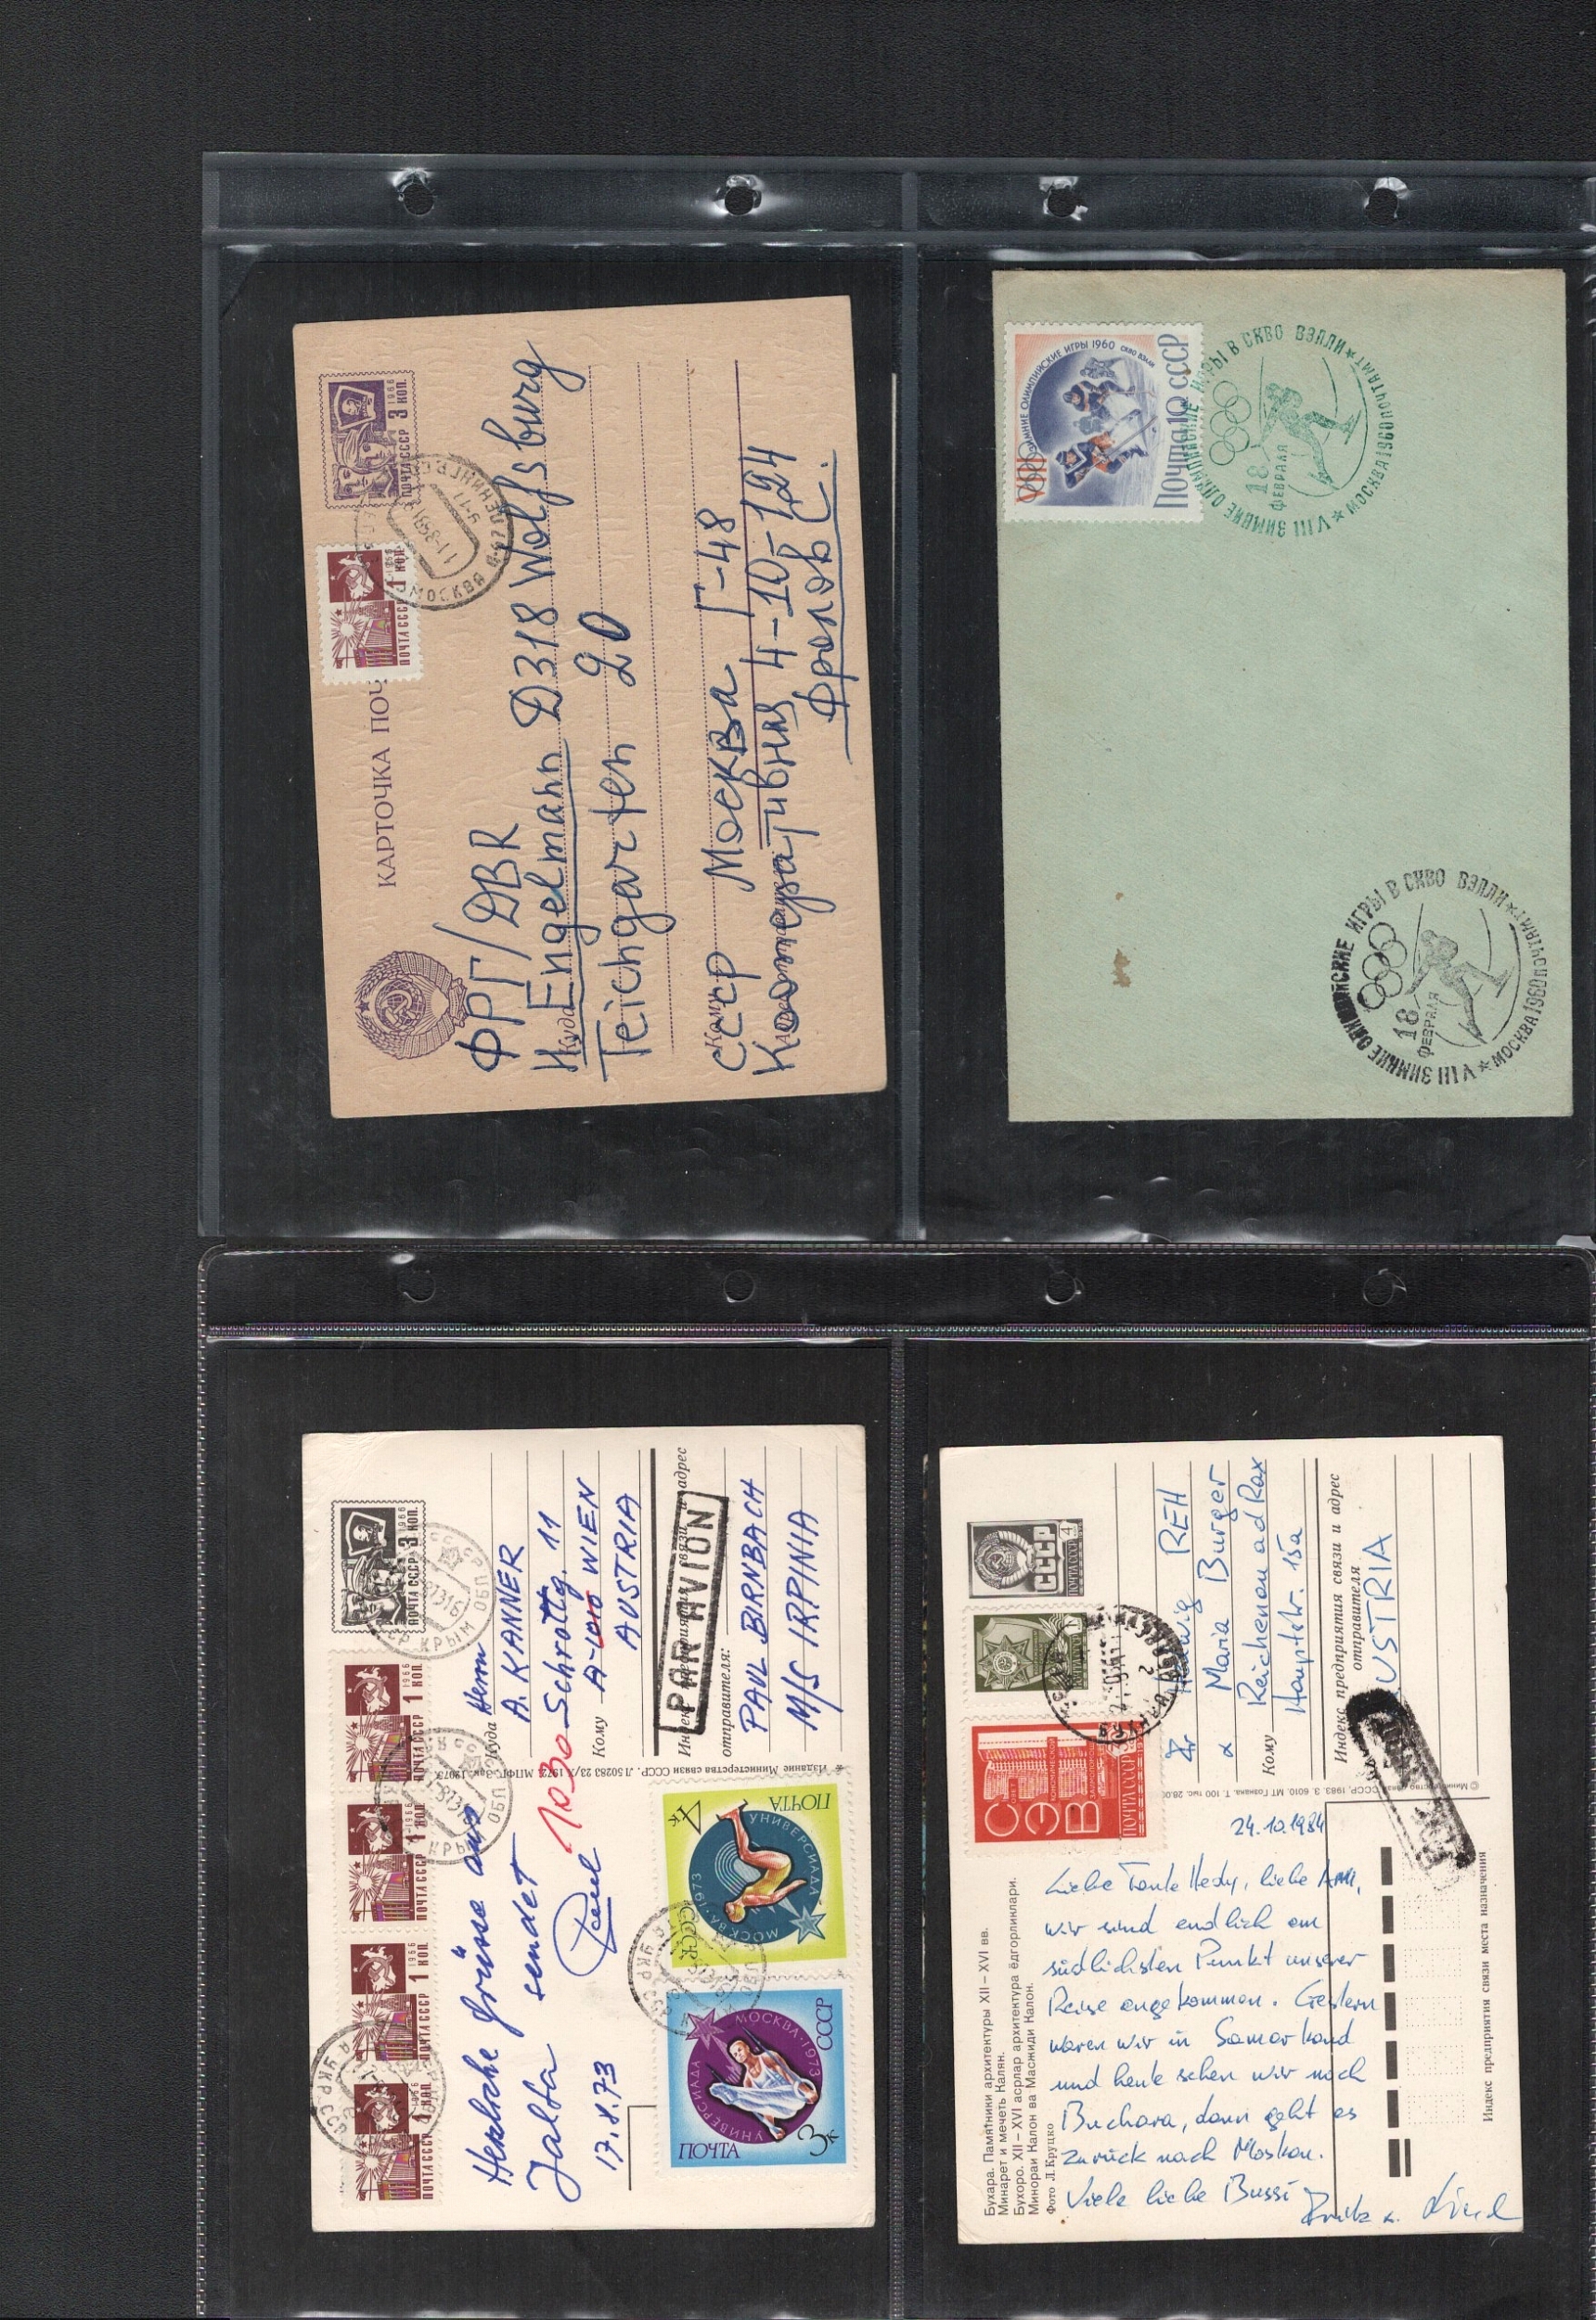 КАРТОЧКА ПОЧ
ПОЧТА СССР 1 КОП.
ПОЧТА СССР 3 КОП.
1966
МОСКВА
ФРГ/DBR
Куда
H. Engelmann D318 Wolfsburg
Teichgarten 20
СССР Москва Г-48
4-10-124
Фролов С.
ЗИМНИЕ ОЛИМПИЙСКИЕ ИГРЫ 1960 СКВО ВЭЛЛИ
VIII
Почта 10 СССР
VIII ЗИМНИЕ ОЛИМПИЙСКИЕ ИГРЫ В СКВО ВЭЛЛИ
18
ФЕВРАЛЯ
МОСКВА 1960 ПОЧТАМТ
VIII ЗИМНИЕ ОЛИМПИЙСКИЕ ИГРЫ В СКВО ВЭЛЛИ
18
ФЕВРАЛЯ
МОСКВА 1960 ПОЧТАМТ
ПОЧТА СССР 1 КОП. 1966
ПОЧТА СССР 1 КОП. 1966
ПОЧТА СССР 1 КОП. 1966
ПОЧТА СССР 1 КОП. 1966
ПОЧТА СССР 3 КОП. 1966
Herzliche Grüsse aus
Jalta sendet
Paul
17.8.73
Куда Herrn
A. KANNER
1030 Schrottg. 11
Кому A-1010 WIEN
AUSTRIA
Индекс предприятия связи и адрес
отправителя:
PAR AVION
PAUL BIRNBACH
M/S IRPINIA
Издание Министерства связи СССР. Л 50283 23/X 1972. МПФГ. Зак. 12073.
ПОЧТА СССР 3к
УНИВЕРСИАДА МОСКВА·1973
ПОЧТА СССР 4к
УНИВЕРСИАДА МОСКВА·1973
Бухара. Памятники архитектуры XII – XVI вв.
Минарет и мечеть Калян.
Бухоро. XII – XVI асрлар архитектура ёдгорликлари.
Минораи Калон ва Масжиди Калон.
Фото Л. Круцко
24.10.1984
Liebe Tante Hedy, liebe Anni,
wir sind endlich am
südlichsten Punkt unserer
Reise angekommen. Gestern
waren wir in Samarkand
und heute sehen wir noch
Buchara, dann geht es
zurück nach Moskau.
Viele liebe Bussi
СЭВ
ПОЧТА СССР
ПОЧТА СССР 4
Hedwig REH
Maria Burger
Кому Reichenau ad Rax
Hauptstr. 15a
Индекс предприятия связи и адрес
отправителя
USTRIA
Индекс предприятия связи места назначения